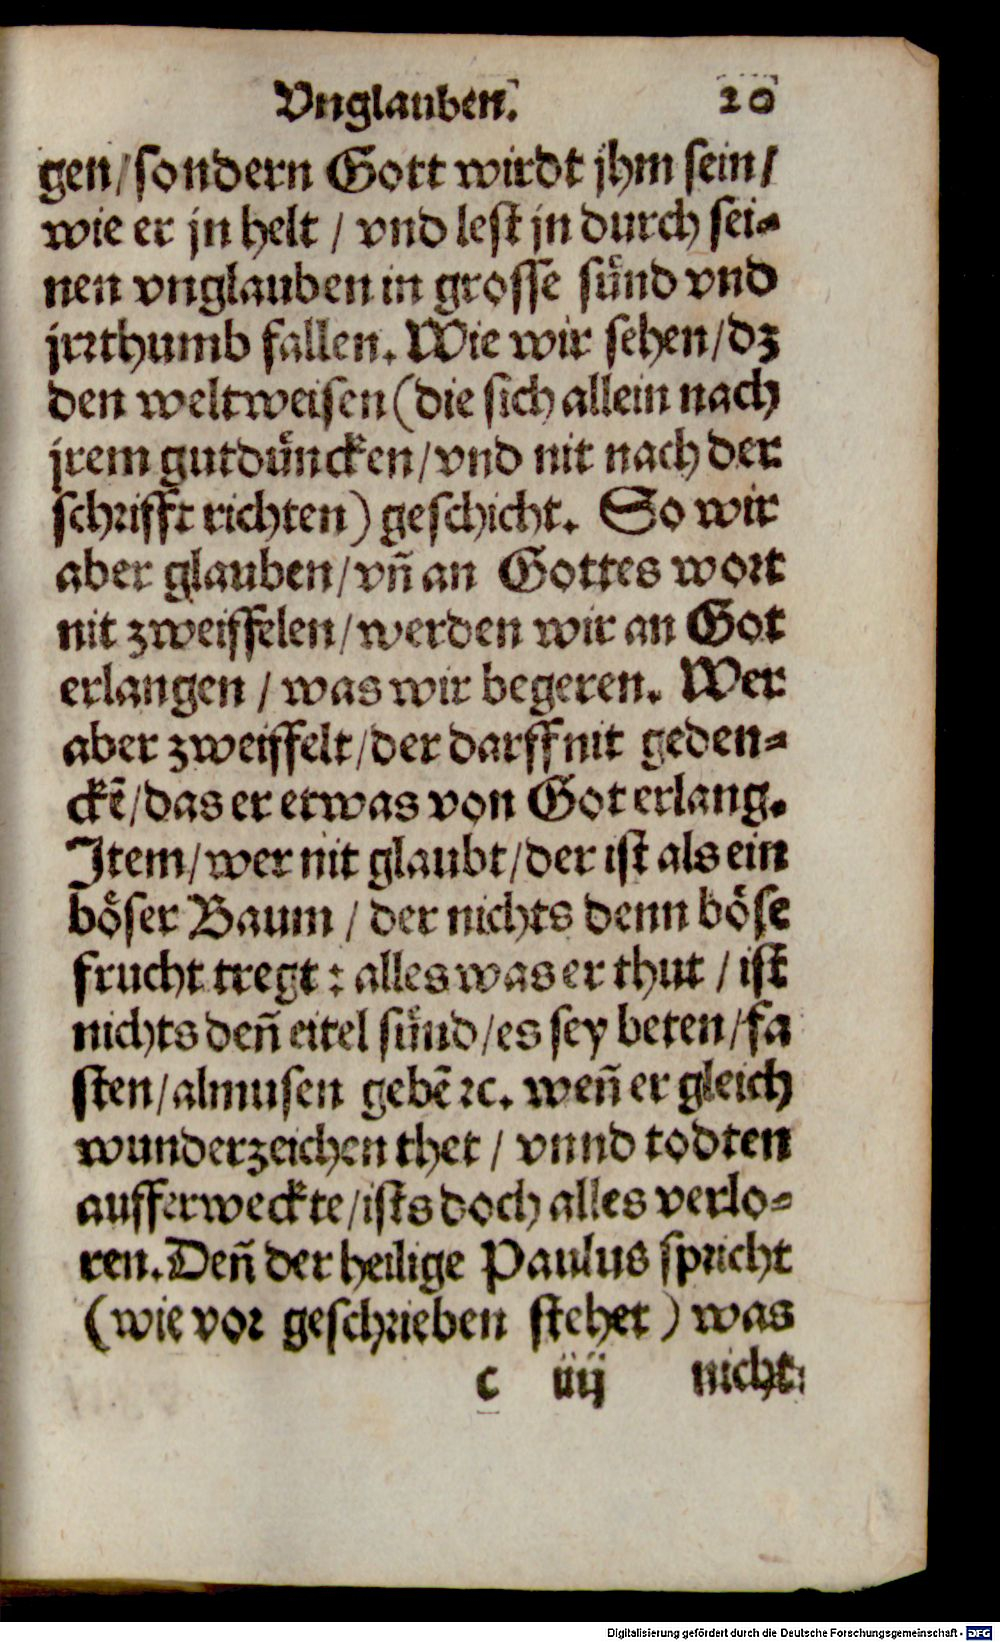 Vnglauben. 20
gen/sondern Gott wirdt jhm sein/
wie er jn helt / vnd lest jn durch sei-
nen vnglauben in grosse sünd vnd
jrrthumb fallen. Wie wir sehen/dz
den weltweisen (die sich allein nach
jrem gutdüncken/vnd nit nach der
schrifft richten) geschicht. So wir
aber glauben/vñ an Gottes wort
nit zweiffelen/werden wir an Got
erlangen / was wir begeren. Wer
aber zweiffelt/der darff nit geden-
ckẽ/das er etwas von Got erlang.
Item/wer nit glaubt/der ist als ein
böser Baum / der nichts denn böse
frucht tregt: alles was er thut / ist
nichts deñ eitel sünd/es sey beten/fa
sten/almusen gebẽ ꝛc. weñ er gleich
wunderzeichen thet / vnnd todten
aufferweckte/ists doch alles verlo-
ren. Deñ der heilige Paulus spricht
(wie vor geschrieben stehet) was
c iiij nicht
Digitalisierung gefördert durch die Deutsche Forschungsgemeinschaft - DFG